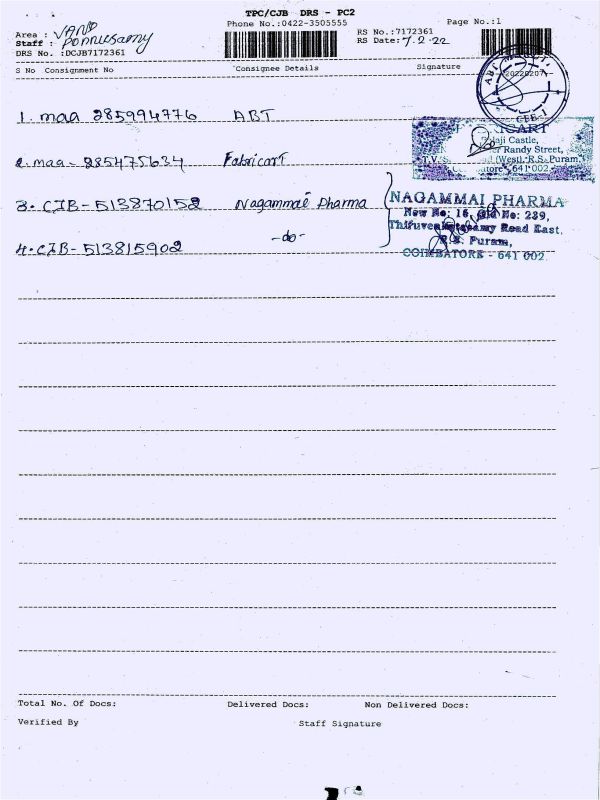 TPC/CJB DRS - PC2
Phone No.:0422-3505555
Page No.:1
Area :
Staff : Ponnusamy
DRS No. :DCJB7172361
RS No.:7172361
RS Date: 7.2.22
S No Consignment No Consignee Details Signature
20220207
1. maa 285994776 ABT
CBE
Castle,
Randy Street,
(West), R.S. Puram,
641 002
2. maa - 285475634 Fabricart
3. CJB - 513870152 Nagammai Pharma
NAGAMMAI PHARMA
New No: 16, Old No: 289,
Road East,
R.S. Puram,
COIMBATORE - 641 002
4. CJB - 513815902 -do-
Total No. Of Docs: Delivered Docs: Non Delivered Docs:
Verified By Staff Signature